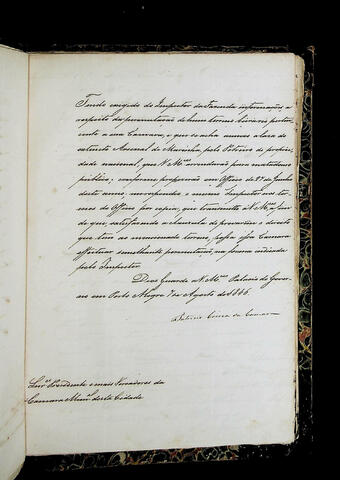 Tendo exigido do Inspector da Fazenda informações a
respeito da permutação de hum terreno pertencente
cente a essa Camara, e que se acha annexo a lara do
extincto Arsenal de Marinha pelo Potreiro de proprie
dade nacional, que V. Mces
publico, conforme propozerão em Officio de 27 de Junho
deste anno, respondeu o mesmo Inspector nos ter
mos do Officio por copia, que transmitto a V. Mces a fim
de que satisfazendo a clausula de provarem o direito
que tem ao mencionado terreno, possa essa Camara
effectuar semelhante permutação, na forma indicada
pelo Inspector.
Deos Guarde a V. Mces Palacio do Gover
no em Porto Alegre 7 de Agosto de 1866.
Antonio da Camara
Snrs Presidente e mais Vereadores da
Camara Munal desta Cidade